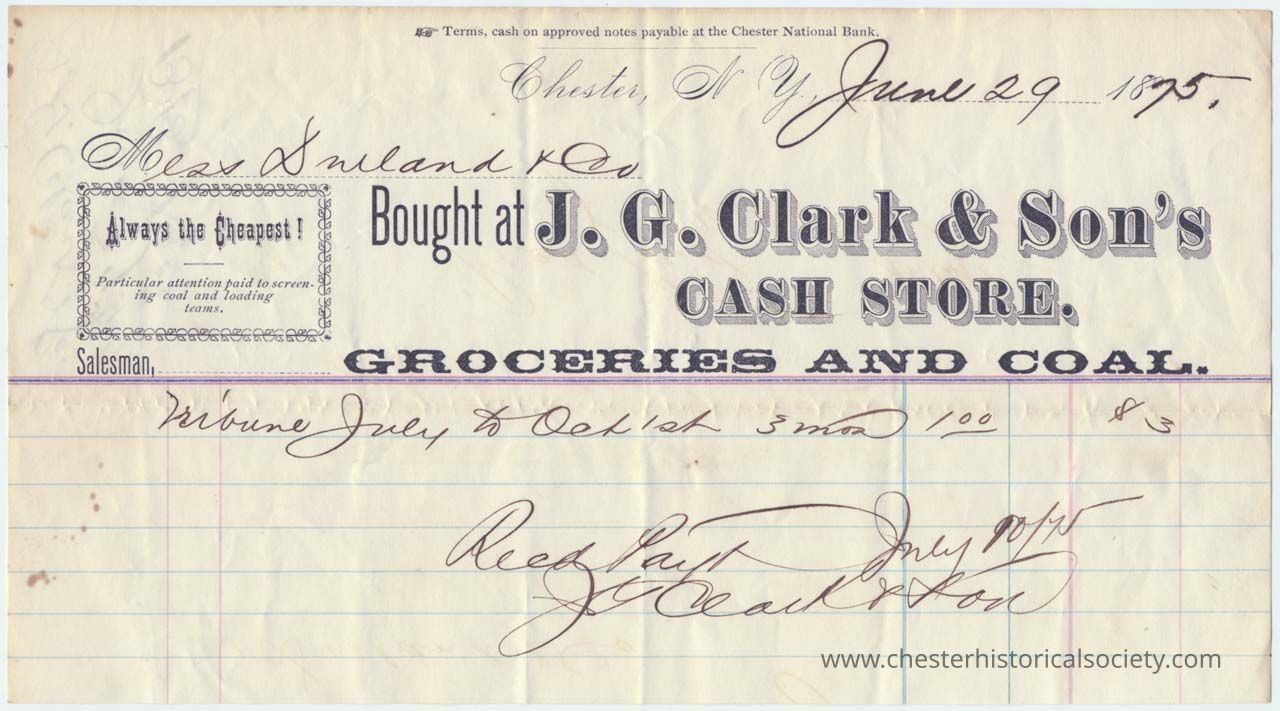 ☞ Terms, cash on approved notes payable at the Chester National Bank.
Chester, N Y, June 29 1875.
Mess & Co
Always the Cheapest!
Particular attention paid to screen-
ing coal and loading
teams.
Bought at J. G. Clark & Son's
CASH STORE.
Salesman,
GROCERIES AND COAL.
Tribune July to Oct 1st 3 mos 1 00 $ 3
Recd Payt July 10/75
J G Clark & Son
www.chesterhistoricalsociety.com